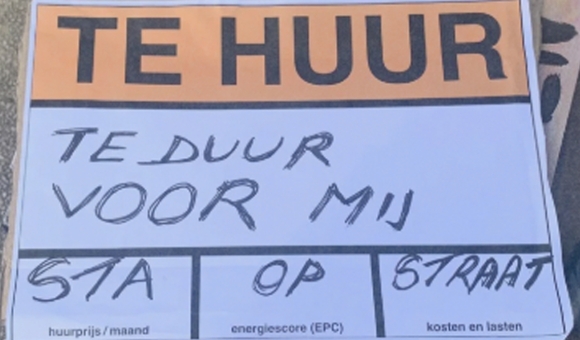 TE HUUR
TE DUUR
VOOR MIJ
STA OP STRAAT
huurprijs / maand energiescore (EPC) kosten en lasten